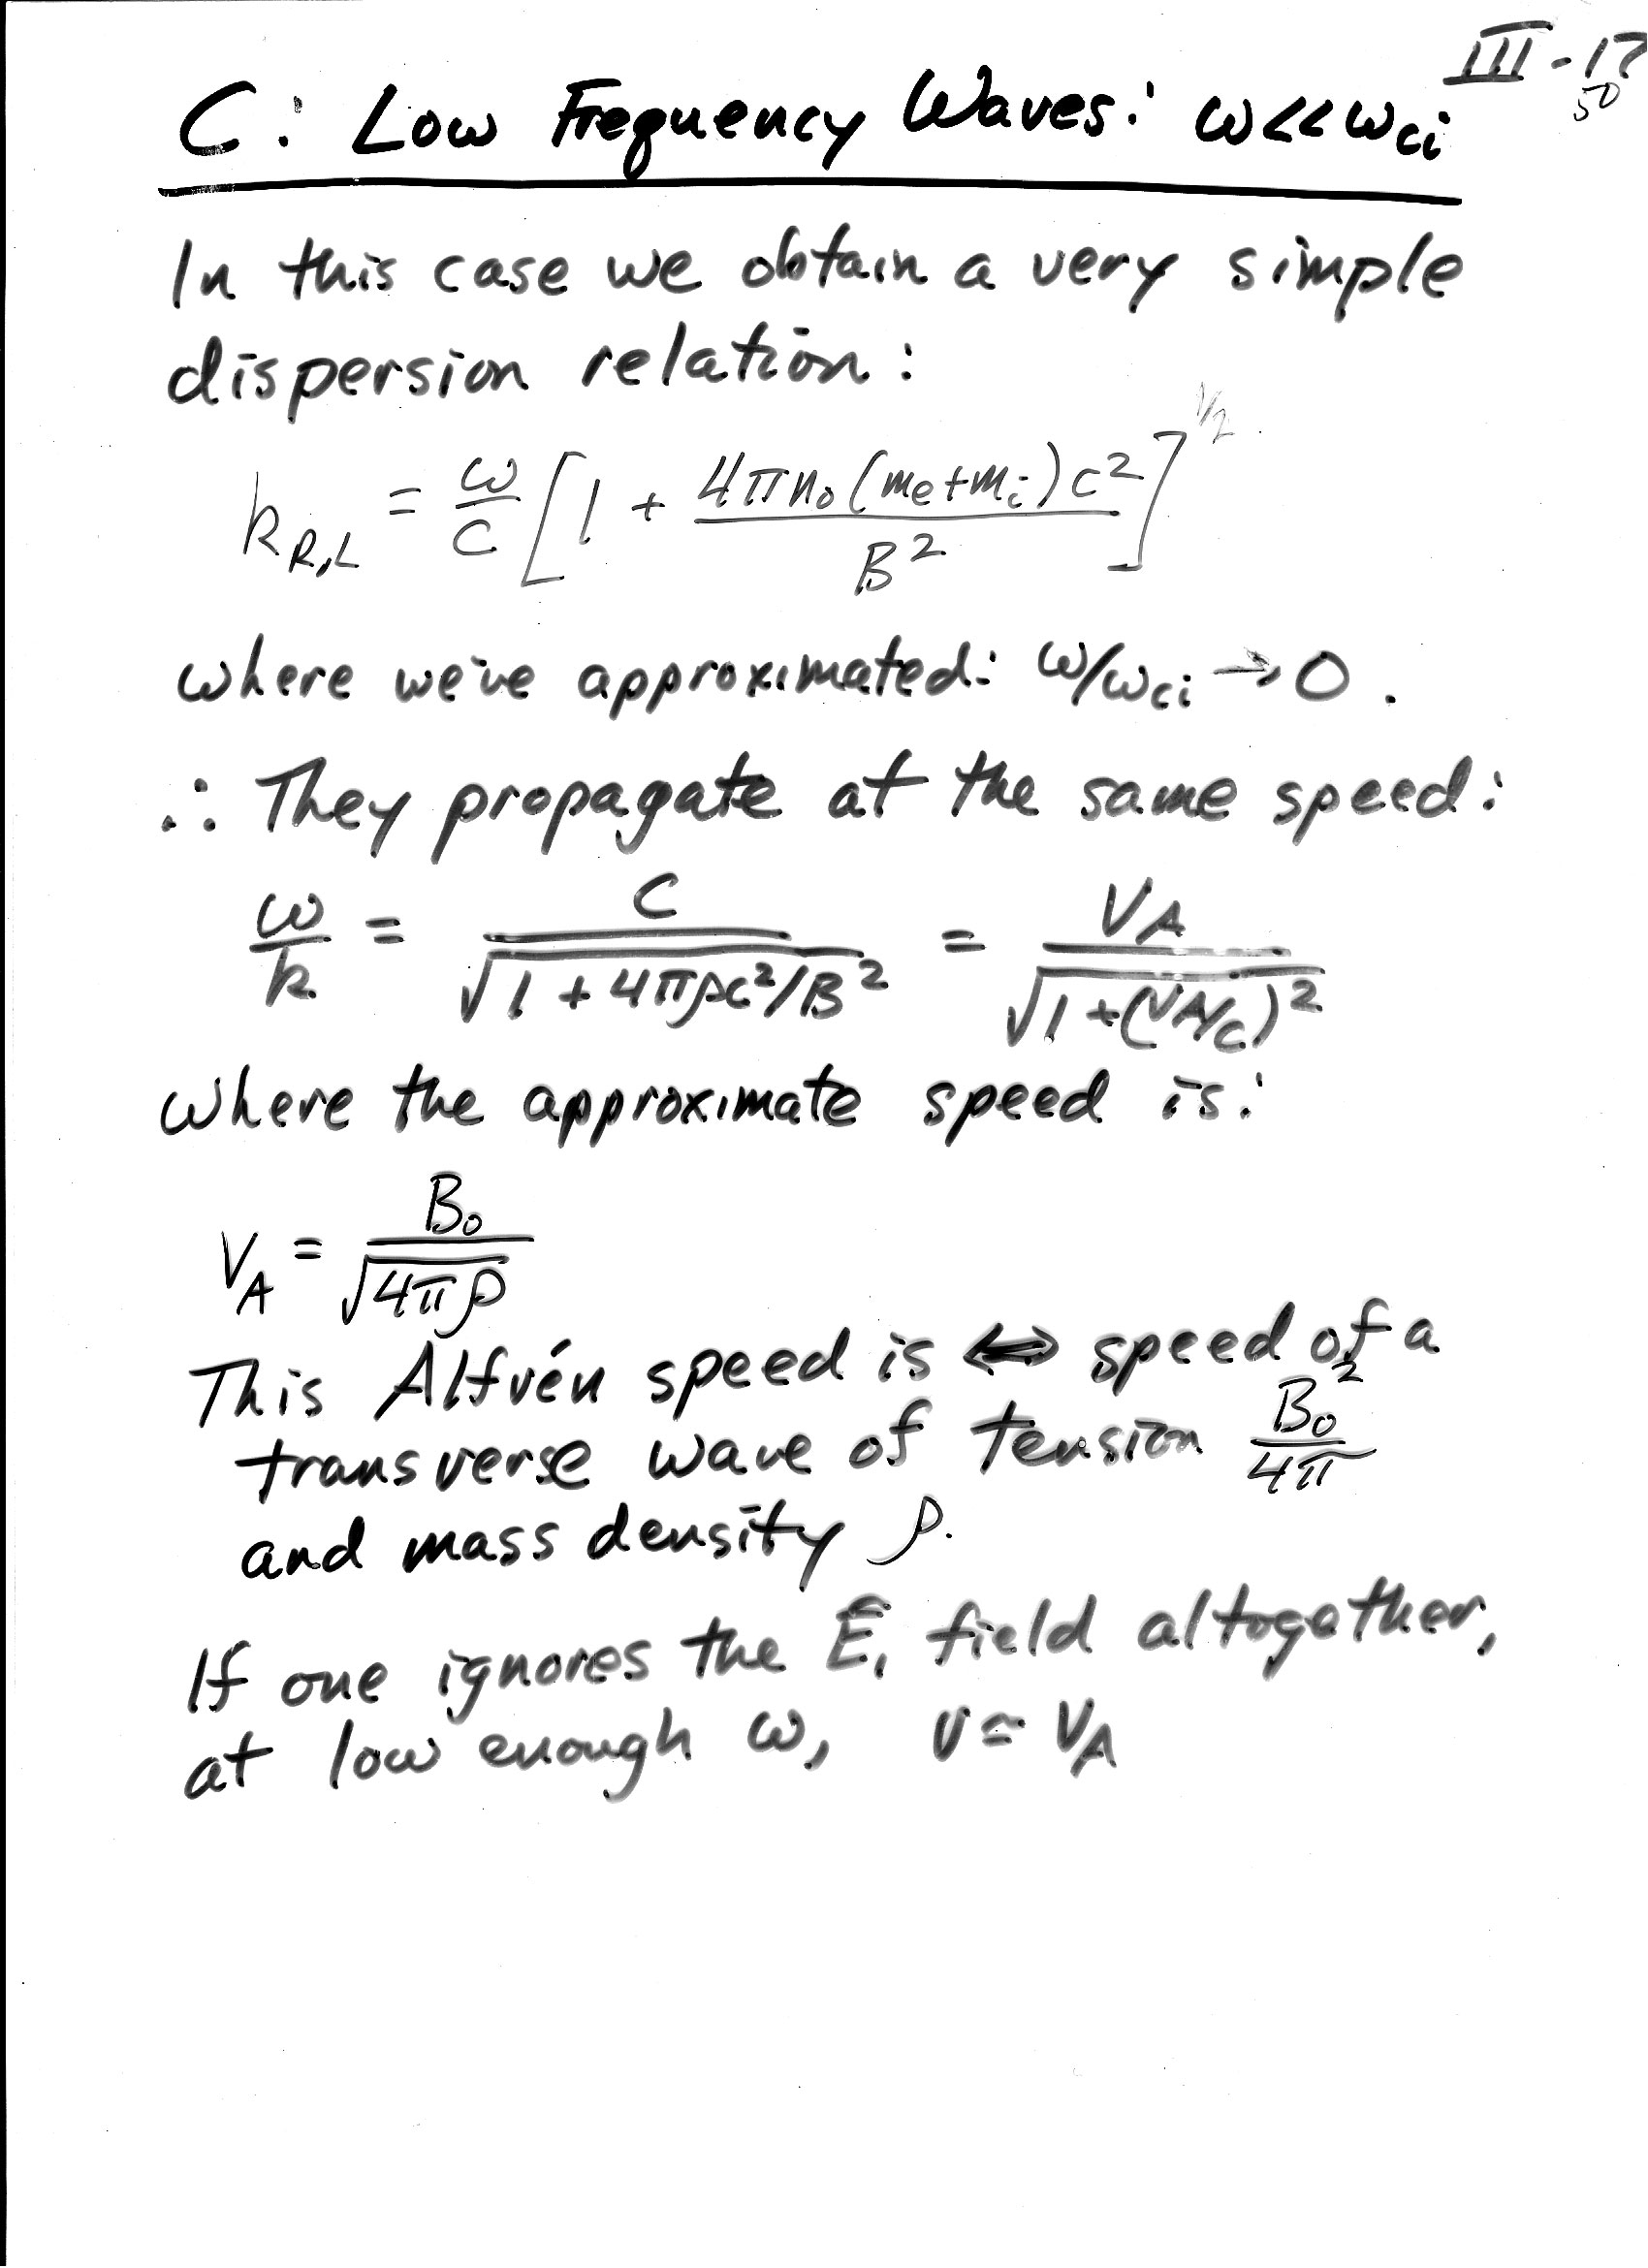 III-17
50
C: Low Frequency Waves: ω<<ω_ci
In this case we obtain a very simple
dispersion relation:
k_R,L = ω/c [1 + 4πn₀(me+mi)c²/B²]^1/2
where we've approximated: ω/ω_ci → 0.
∴ They propagate at the same speed:
ω/k = c/√(1+4πρc²/B²) = V_A/√(1+(V_A/c)²)
where the approximate speed is:
V_A = B₀/√(4πρ)
This Alfvén speed is ⟺ speed of a
transverse wave of tension B₀²/4π
and mass density ρ.
If one ignores the E₁ field altogether,
at low enough ω, v ≃ V_A